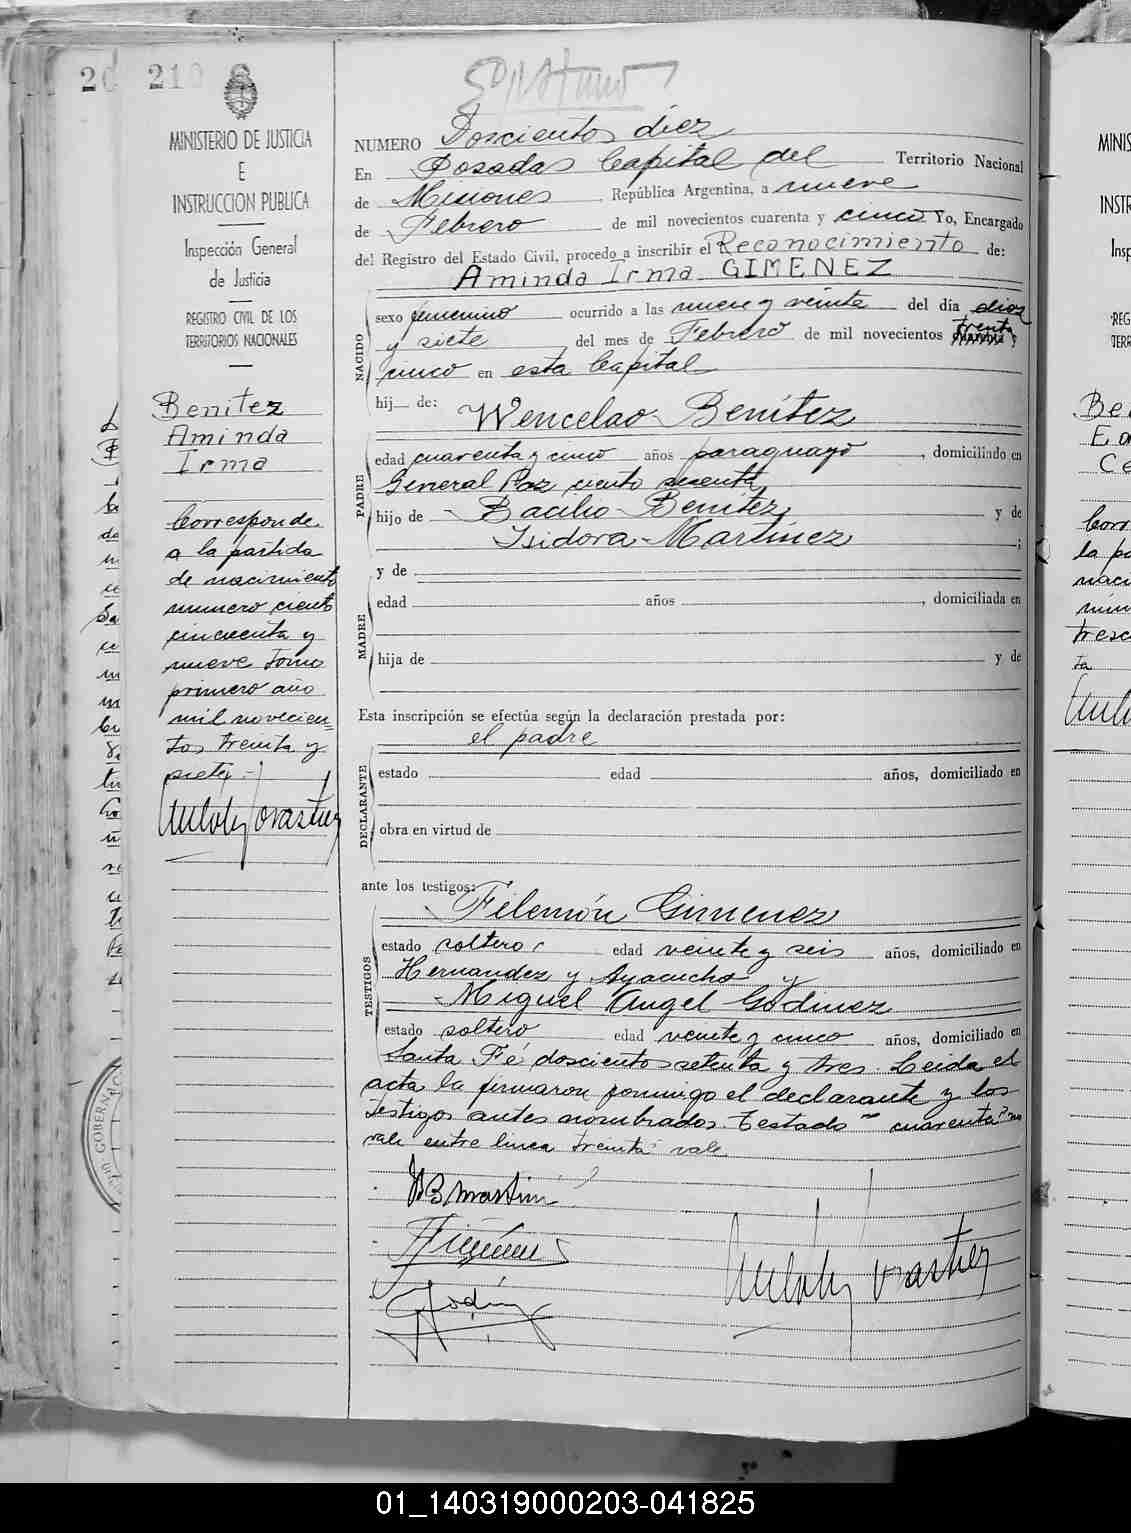 210
MINISTERIO DE JUSTICIA
E
INSTRUCCION PUBLICA
Inspección General
de Justicia
REGISTRO CIVIL DE LOS
TERRITORIOS NACIONALES
Benitez
Aminda
Irma
Corresponde
a la partida
de nacimiento
numero ciento
cincuenta y
nueve tomo
primero año
mil novecien=
tos treinta y
siete.-
NUMERO Doscientos diez
En Posadas Capital del Territorio Nacional
de Misiones República Argentina, a nueve
de Febrero de mil novecientos cuarenta y cinco Yo, Encargado
del Registro del Estado Civil, procedo a inscribir el Reconocimiento de:
Aminda Irma GIMENEZ
NACIDO
sexo femenino ocurrido a las nueve y veinte del día diez
y siete del mes de Febrero de mil novecientos treinta y
cinco en esta Capital
hij de: Wencelao Benítez
PADRE
edad cuarenta y cinco años paraguayo, domiciliado en
General Paz ciento sesenta
hijo de Bacilio Benitez y de
Isidora Martínez ;
MADRE
y de
edad años , domiciliada en
hija de y de
Esta inscripción se efectúa según la declaración prestada por:
el padre
DECLARANTE
estado edad años, domiciliado en
obra en virtud de
ante los testigos:
Filemón Gimenez
TESTIGOS
estado soltero edad veinte y seis años, domiciliado en
Hernandez y Ayacucho y
Miguel Angel Godinez
estado soltero edad veinte y cinco años, domiciliado en
Santa Fé doscientos setenta y tres. Leida el
acta la firmaron conmigo el declarante y los
testigos antes nombrados. Testado "cuarenta" no
vale entre linea "treinta" vale.
MINIS
INSTR
Insp
REG
TERR
01_140319000203-041825